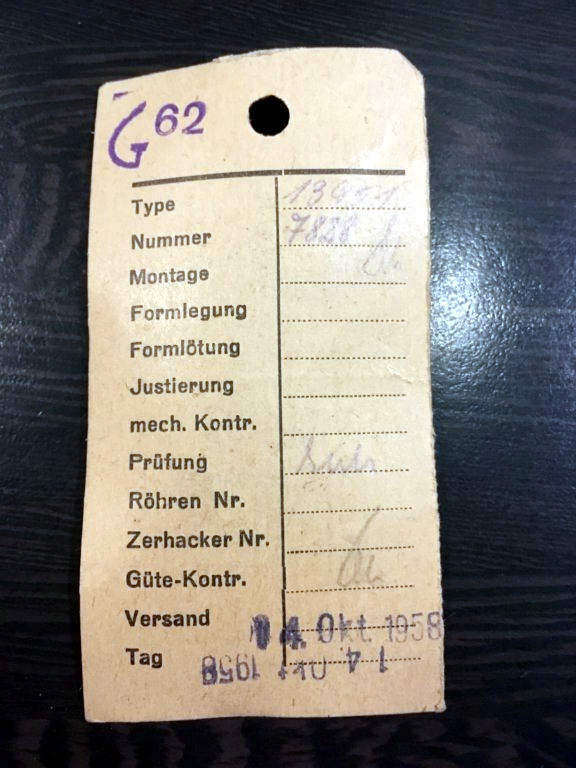 G 62
Type
Nummer 7828
Montage
Formlegung
Formlötung
Justierung
mech. Kontr.
Prüfung
Röhren Nr.
Zerhacker Nr.
Güte-Kontr.
Versand 14. Okt. 1958
Tag 14 Okt 1958